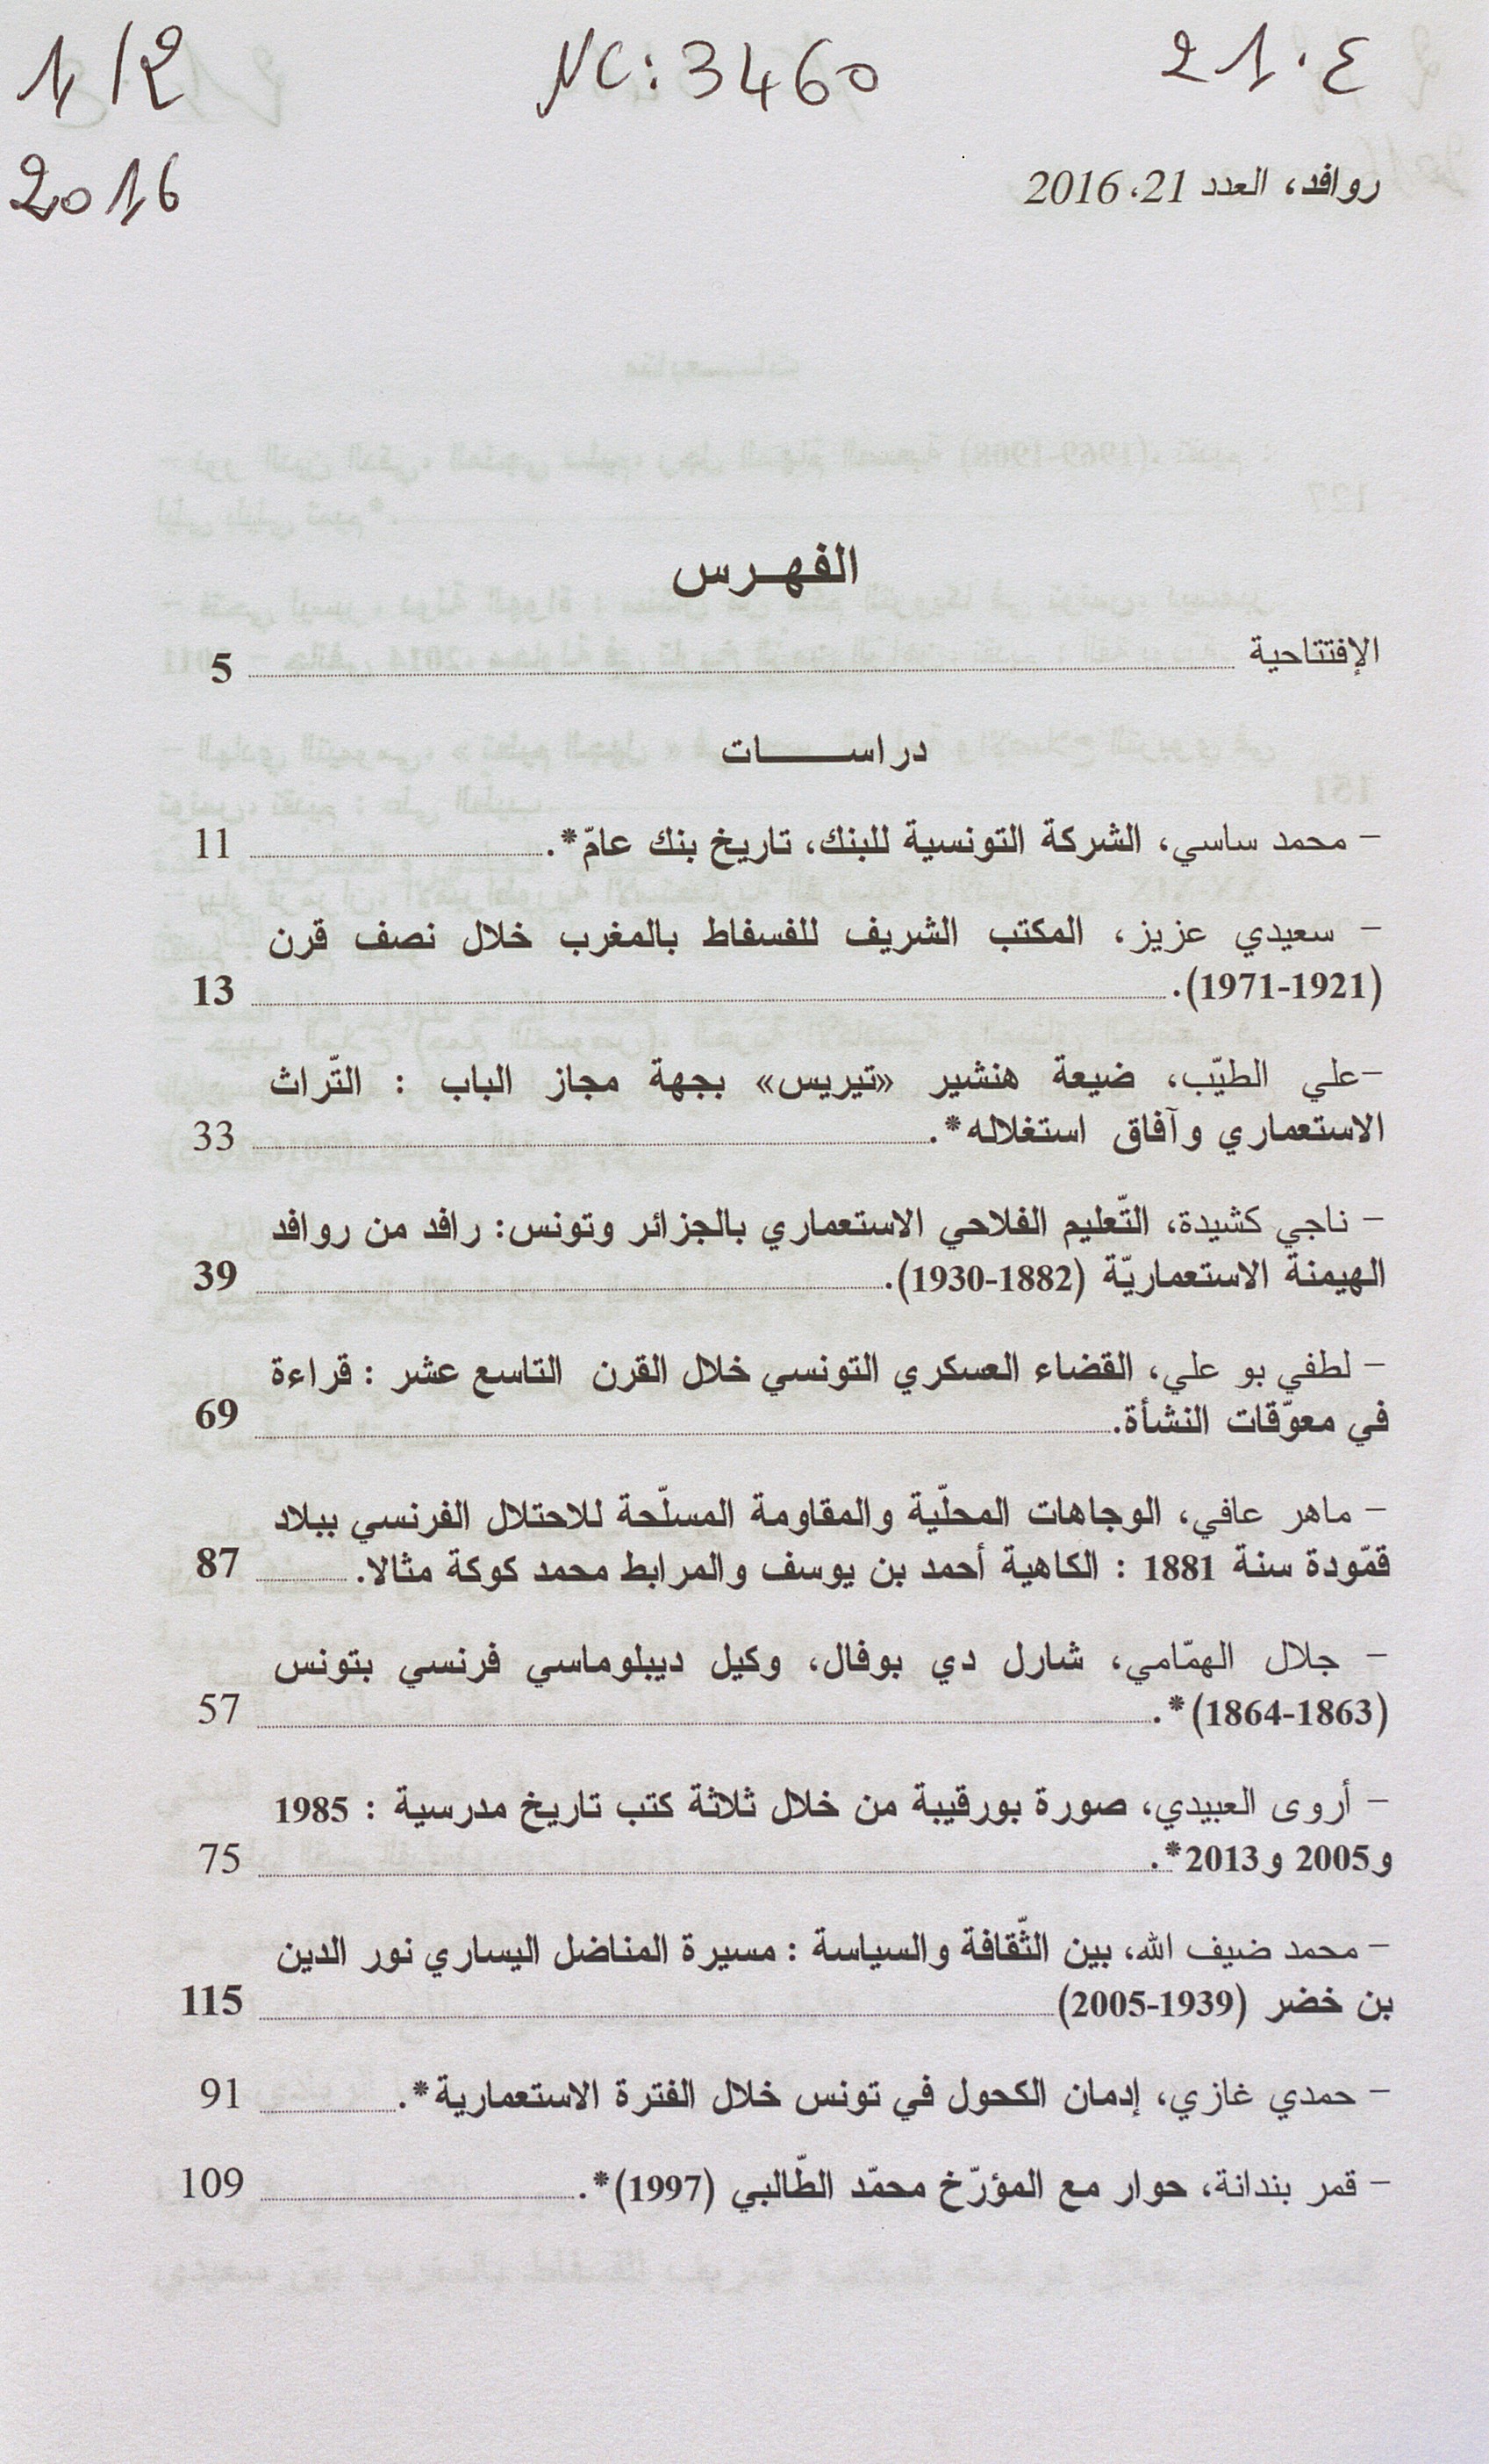 1/2
2016
NC: 3460
21.ع
روافد، العدد 21، 2016
الفهـرس
الإفتتاحية 5
دراســـــات
– محمد ساسي، الشركة التونسية للبنك، تاريخ بنك عامّ*. 11
– سعيدي عزيز، المكتب الشريف للفسفاط بالمغرب خلال نصف قرن
(1921-1971). 13
–علي الطيّب، ضيعة هنشير «تيريس» بجهة مجاز الباب : التّراث
الاستعماري وآفاق استغلاله*. 33
– ناجي كشيدة، التّعليم الفلاحي الاستعماري بالجزائر وتونس: رافد من روافد
الهيمنة الاستعماريّة (1882-1930). 39
– لطفي بو علي، القضاء العسكري التونسي خلال القرن التاسع عشر : قراءة
في معوّقات النشأة. 69
– ماهر عافي، الوجاهات المحلّية والمقاومة المسلّحة للاحتلال الفرنسي ببلاد
قمّودة سنة 1881 : الكاهية أحمد بن يوسف والمرابط محمد كوكة مثالا. 87
– جلال الهمّامي، شارل دي بوفال، وكيل ديبلوماسي فرنسي بتونس
(1863-1864)*. 57
– أروى العبيدي، صورة بورقيبة من خلال ثلاثة كتب تاريخ مدرسية : 1985
و2005 و2013*. 75
– محمد ضيف الله، بين الثّقافة والسياسة : مسيرة المناضل اليساري نور الدين
بن خضر (1939-2005) 115
– حمدي غازي، إدمان الكحول في تونس خلال الفترة الاستعمارية*. 91
– قمر بندانة، حوار مع المؤرّخ محمّد الطّالبي (1997)*. 109